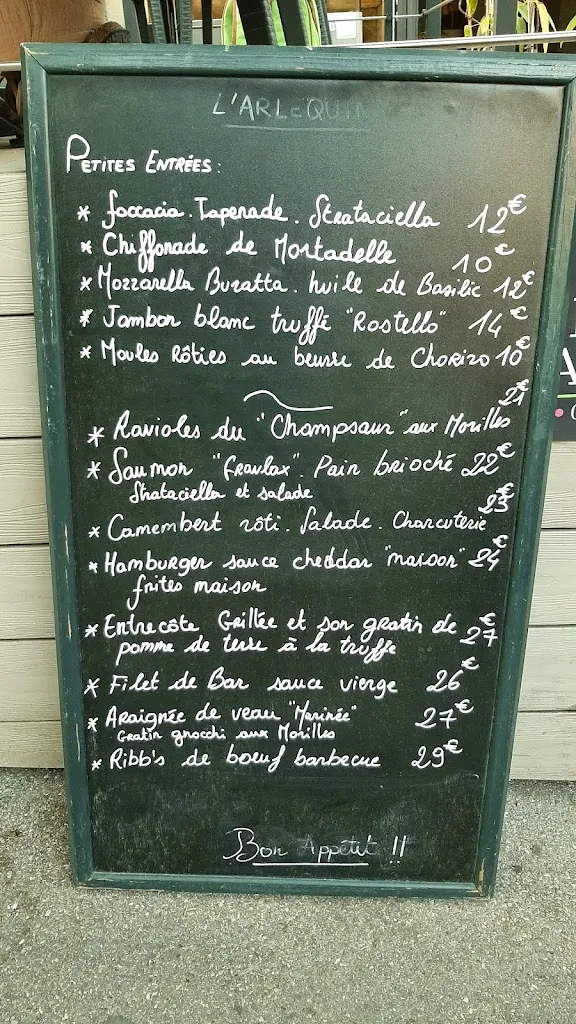 L'ARLEQUIN
PETITES ENTRÉES:
* foccacia. Tapenade. Strataciella 12€
* Chiffonade de Mortadelle 10€
* Mozzarella Buratta. huile de Basilic 12€
* Jambon blanc truffé "Rostello" 14€
* Moules Rôties au beurre de Chorizo 10€
* Ravioles du "Champsaur" aux Morilles 21€
* Saumon "Gravlax". Pain brioché 22€
Strataciella et salade
* Camembert rôti. Salade. Charcuterie 23€
* Hamburger sauce cheddar "maison" 24€
frites maison
* Entrecôte Grillée et son gratin de 27€
pomme de terre à la truffe
* Filet de Bar sauce vierge 26€
* Araignée de veau "Marinée" 27€
Gratin gnocchi aux Morilles
* Ribb's de boeuf barbecue 29€
Bon Appétit !!